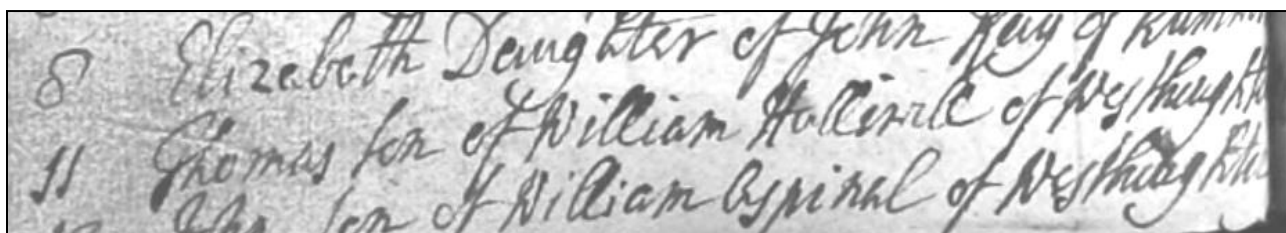 8 Elizabeth Daughter of John Kay of
11 Thomas Son of William Holliwell of Westhaughto
John Son of William Aspinal of Westhaughto